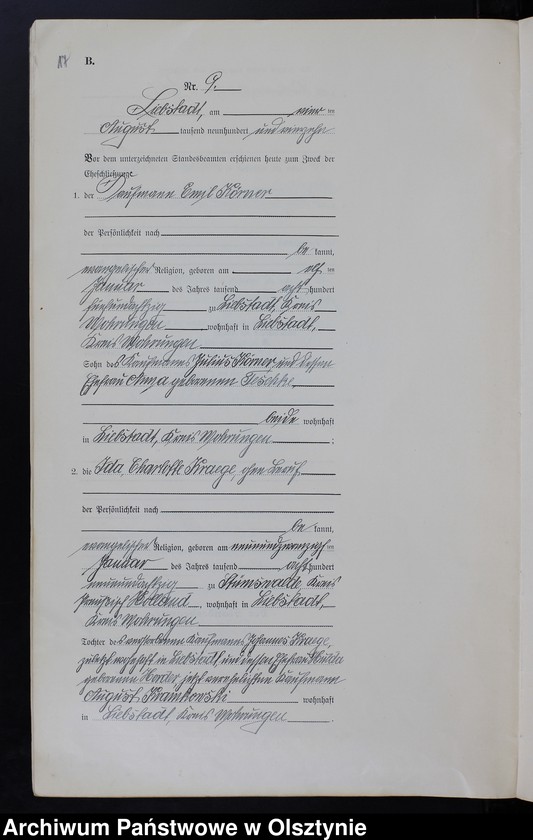 17
B.
Nr. 9.
Liebstadt, am vier ten
August tausend neunhundert und vierzehn
Vor dem unterzeichneten Standesbeamten erschienen heute zum Zweck der
Eheschließung:
1. der Kaufmann Emil Körner
der Persönlichkeit nach
be kannt,
evangelischer Religion, geboren am elf ten
Januar des Jahres tausend acht hundert
fünfundachtzig zu Liebstadt, Kreis
Mohrungen, wohnhaft in Liebstadt,
Kreis Mohrungen
Sohn des Kaufmanns Julius Körner und dessen
Ehefrau geborenen
beide wohnhaft
in Liebstadt, Kreis Mohrungen ;
2. die Ida Charlotte Kraege, ohne Beruf
der Persönlichkeit nach
be kannt,
evangelischer Religion, geboren am neunundzwanzig ten
Januar des Jahres tausend acht hundert
neunundachtzig zu Kreis
Preußisch Holland, wohnhaft in Liebstadt,
Kreis Mohrungen
Tochter des verstorbenen Kaufmanns Johannes Kraege,
zuletzt wohnhaft in Liebstadt, und dessen Ehefrau
geborenen jetzt verehelichten Kaufmann
August Kramkowski wohnhaft
in Liebstadt, Kreis Mohrungen .
Archiwum Państwowe w Olsztynie